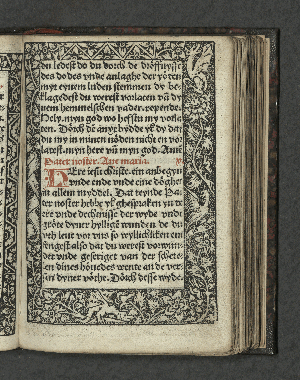 du ledest do du dorch de bröffnysse
des dodes vnde anlaghe der yöden
myt eynem luden stemmen dy be-
klagedest du werest vorlaten vā dy
nem hemmelschen vader. repende.
Hely. myn god wo heffstu my vorla
ten. Dörch de anxt bydde yk dy dat
du my in mynen nöden nicht en vor
latest. myn here vñ myn god. Amē
Pater noster. Aue maria. v
Here iesu christe. ein anbegyn
vnde ende vnde eine döghet
in allem myddel. Dat teynde Pa-
ter noster hebbe yk ghespraken yn de
ere vnde dechtnisse der wyde vnde
gröte dyner hyllighē wunden de du
vth leue vor vns so myldichliken ent
fingest also dat du werest vorwun-
det vnde geseriget van der schetele
en dines höuedes wente an de ver-
sen dyner vöthe. Dörch desse wyde